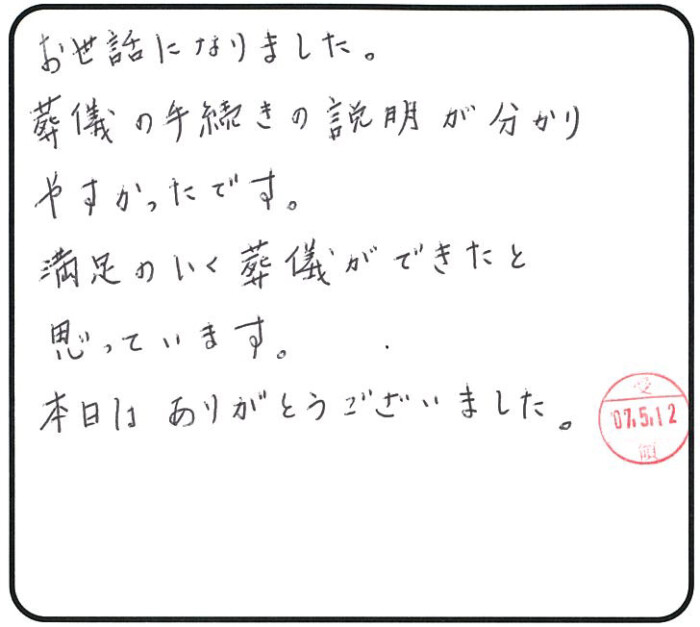 お世話になりました。
葬儀の手続きの説明が分かり
やすかったです。
満足のいく葬儀ができたと
思っています。
本日はありがとうございました。
受
07.5.12
領